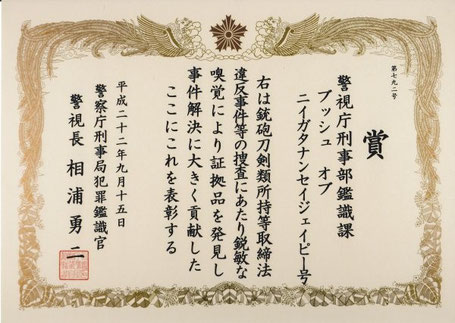 第七九二号
賞
警視庁刑事部鑑識課
ブッシュ オブ
ニイガタナンセイジェイピー号
右は銃砲刀剣類所持等取締法
違反事件等の捜査にあたり鋭敏な
嗅覚により証拠品を発見し
事件解決に大きく貢献した
ここにこれを表彰する
平成二十二年九月十五日
警察庁刑事局犯罪鑑識官
警視長 相浦勇二